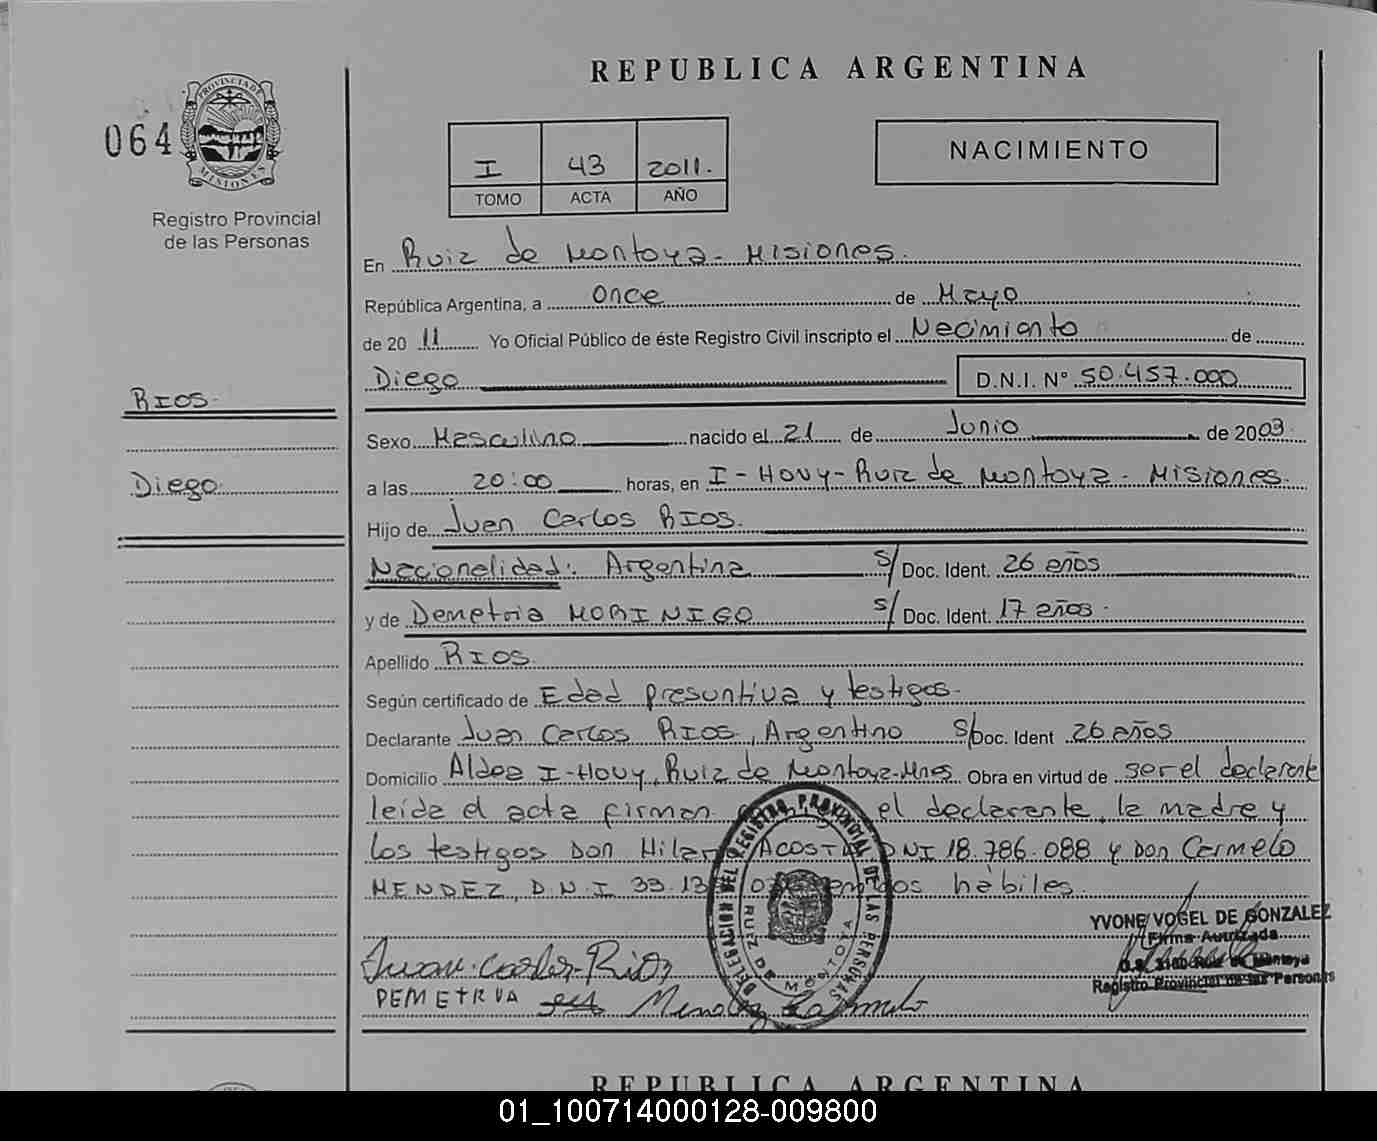 REPUBLICA ARGENTINA
064
PROVINCIA DE
MISIONES
Registro Provincial
de las Personas
I 43 2011.
TOMO ACTA AÑO
NACIMIENTO
En Ruiz de Montoya - Misiones.
República Argentina, a Once de Mayo
de 20 11 Yo Oficial Público de éste Registro Civil inscripto el Nacimiento de
Diego D.N.I. N° 50.457.000
RIOS
Sexo Masculino nacido el 21 de Junio de 2003
Diego
a las 20:00 horas, en I-HOVY-Ruiz de Montoya - Misiones.
Hijo de Juan Carlos RIOS.
Nacionalidad: Argentina s/ Doc. Ident. 26 años
y de Demetria MORINIGO s/ Doc. Ident. 17 años.
Apellido RIOS
Según certificado de Edad presuntiva y testigos.
Declarante Juan Carlos RIOS, Argentino s/Doc. Ident 26 años
Domicilio Aldea I-HOVY, Ruiz de Montoya-Mnes Obra en virtud de ser el declarante
leída el acta firman el declarante, la madre y
los testigos Don ACOSTA DNI 18.786.088 y Don Carmelo
MENDEZ, D.N.I. hábiles.
DELEGACION DEL REGISTRO PROVINCIAL DE LAS PERSONAS
RUIZ DE MONTOYA
YVONE VOGEL DE GONZALEZ
Firma Autorizada
Ruiz de Montoya
Registro Provincial de las Personas
Juan Carlos Rios
DEMETRIA Mendez Carmelo
REPUBLICA ARGENTINA
01_100714000128-009800